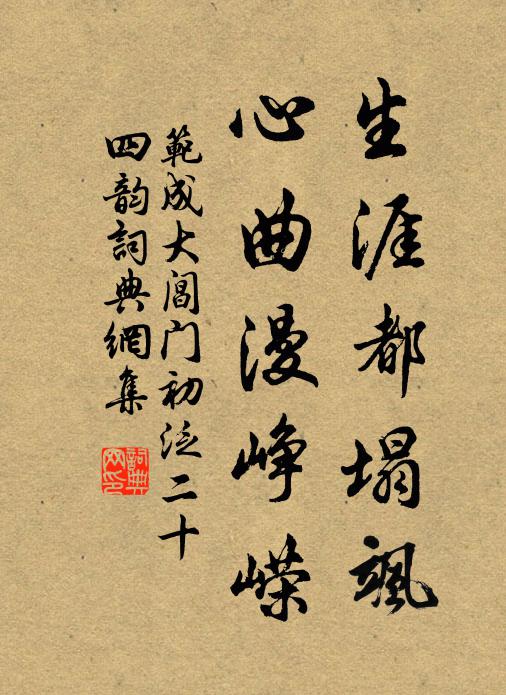 生涯都塌颯
心曲漫峥嶸
範成大閶门初泛二十
四韵詞典網集
詞典
网印